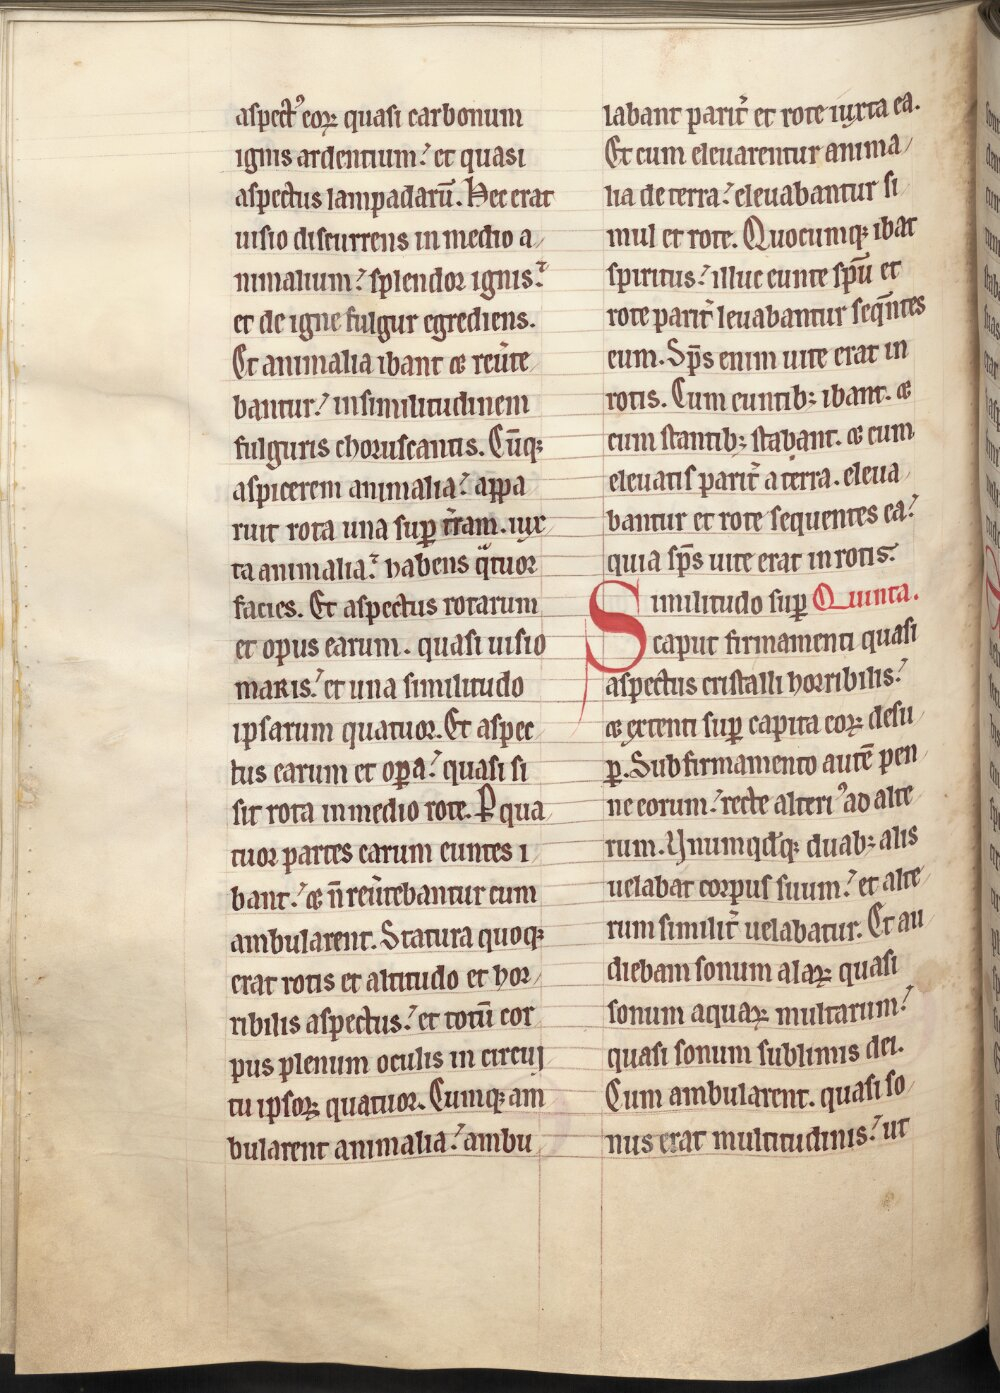 aspect᷒ eoꝝ quasi carbonum
ignis ardentium.᷎ et quasi
aspectus lampadarū. Hec erat
uisio discurrens in medio a/
nimalium.᷎ splendor ignis.᷎
et de igne fulgur egrediens.
Et animalia ibant ⁊ reu᷑te
bantur.᷎ in similitudinem
fulguris choruscantis. Cūq;
aspicerem animalia.᷎ appa
ruit rota una suꝑ t᷑ram. iux
ta animalia.᷎ habens qͣtuor
facies. Et aspectus rotarum
et opus earum. quasi uisio
maris.᷎ et una similitudo
ipsarum quatuor. Et aspec/
tus earum et oꝑa.᷎ quasi si
sit rota in medio rote. Ꝑ qua
tuor partes earum euntes i
bant.᷎ ⁊ n̄ reu᷑tebantur cum
ambularent. Statura quoq;
erat rotis et altitudo et hor/
ribilis aspectus.᷎ et totū cor
pus plenum oculis in circuj
tu ipsoꝝ quatuor. Cumq; am
bularent animalia.᷎ ambu/
labant parit᷑ et rote iuxta ea.
Et cum eleuarentur anima/
lia de terra.᷎ eleuabantur si
mul et rote. Quocumq; ibat
spiritus.᷎ illuc eunte sp̄u et
rote parit᷑ leuabantur seq̄ntes
eum. Sp̄s enim uite erat in
rotis. Cum euntib; ibant. ⁊
cum stantib; stabant. ⁊ cum
eleuatis parit᷑ a terra. eleua/
bantur et rote sequentes ea.᷎
quia sp̄s uite erat in rotis.
Similitudo suꝑ Quinta.
caput firmamenti quasi
aspectus cristalli horribilis.᷎
⁊ extenti suꝑ capita eoꝝ desu
ꝑ. Sub firmamento autē pen
ne eorum.᷎ recte alteri᷒ ad alte/
rum. Vnumqd̛q; duab; alis
uelabat corpus suum.᷎ et alte/
rum similit᷑ uelabatur. Et au
diebam sonum alaꝝ quasi
sonum aquaꝝ multarum.᷎
quasi sonum sublimis dei.
Cum ambularent. quasi so/
nus erat multitudinis.᷎ ut